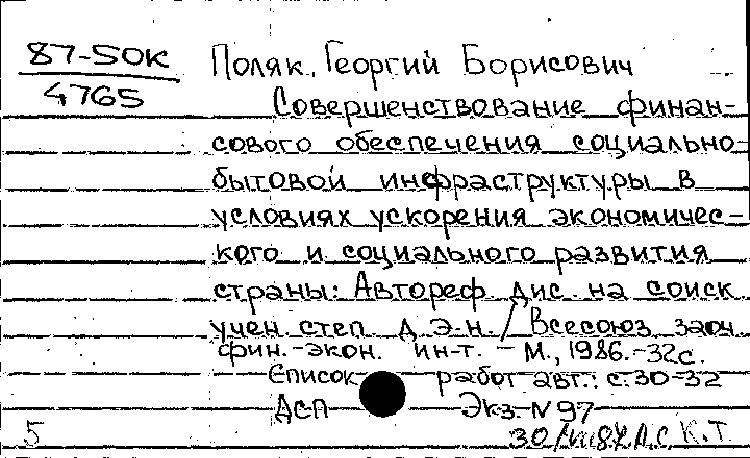 87-50К
4765
Поляк, Георгий Борисович
Совершенствование финан-
сового обеспечения социально-
бытовой инфраструктуры в
условиях ускорения экономичес-
кого и социального развития
страны: Автореф дис. на соиск
учен. степ. д.э.н. / Всесоюз. заоч.
фин.-экон. ин-т. - М., 1986.-32с.
Список работ авт.: с.30-32
ДСП Экз. N 97
5 К.Т.